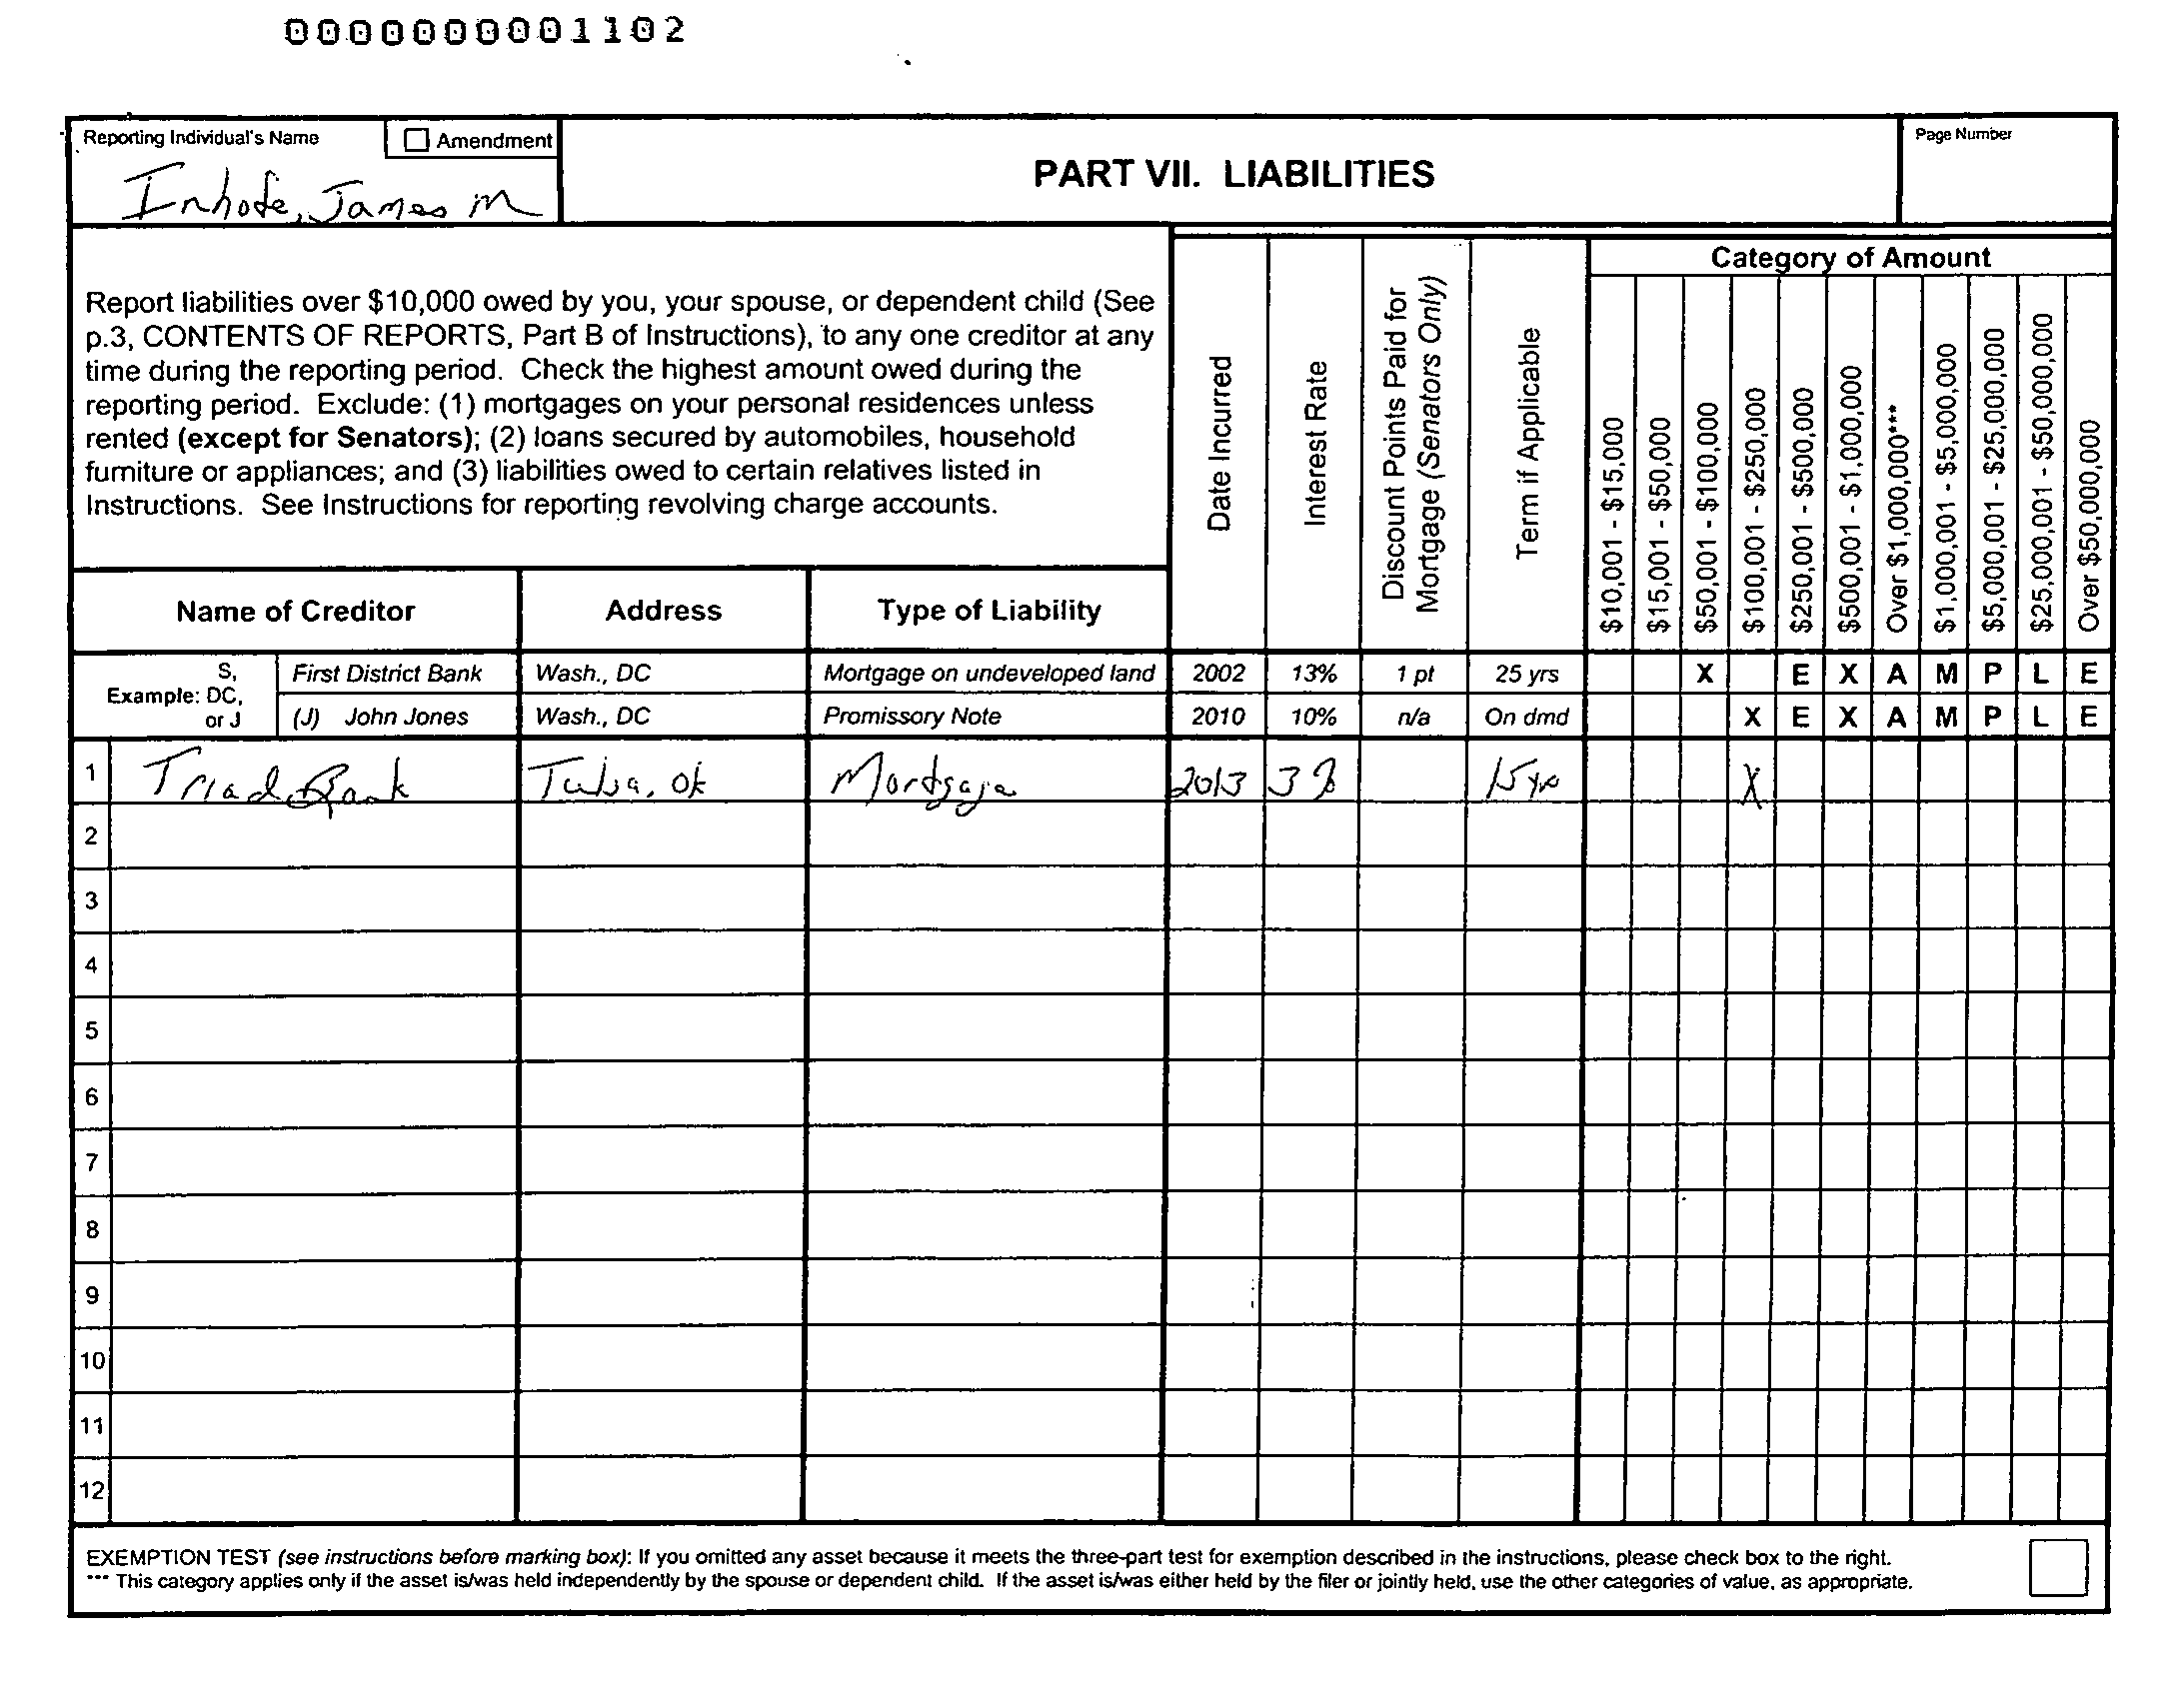 0000000001102
Reporting Individual's Name
Amendment
Inhofe, James M
PART VII. LIABILITIES
Page Number
Report liabilities over $10,000 owed by you, your spouse, or dependent child (See
p.3, CONTENTS OF REPORTS, Part B of Instructions), to any one creditor at any
time during the reporting period. Check the highest amount owed during the
reporting period. Exclude: (1) mortgages on your personal residences unless
rented (except for Senators); (2) loans secured by automobiles, household
furniture or appliances; and (3) liabilities owed to certain relatives listed in
Instructions. See Instructions for reporting revolving charge accounts.
Date Incurred
Interest Rate
Discount Points Paid for
Mortgage (Senators Only)
Term if Applicable
Category of Amount
$10,001 - $15,000
$15,001 - $50,000
$50,001 - $100,000
$100,001 - $250,000
$250,001 - $500,000
$500,001 - $1,000,000
Over $1,000,000***
$1,000,001 - $5,000,000
$5,000,001 - $25,000,000
$25,000,001 - $50,000,000
Over $50,000,000
Name of Creditor Address Type of Liability
Example: S, DC, or J
First District Bank Wash., DC Mortgage on undeveloped land 2002 13% 1 pt 25 yrs X E X A M P L E
(J) John Jones Wash., DC Promissory Note 2010 10% n/a On dmd X E X A M P L E
1 Triad Bank Tulsa, OK Mortgage 2013 3% 15 yr X
2
3
4
5
6
7
8
9
10
11
12
EXEMPTION TEST (see instructions before marking box): If you omitted any asset because it meets the three-part test for exemption described in the instructions, please check box to the right.
*** This category applies only if the asset is/was held independently by the spouse or dependent child. If the asset is/was either held by the filer or jointly held, use the other categories of value, as appropriate.